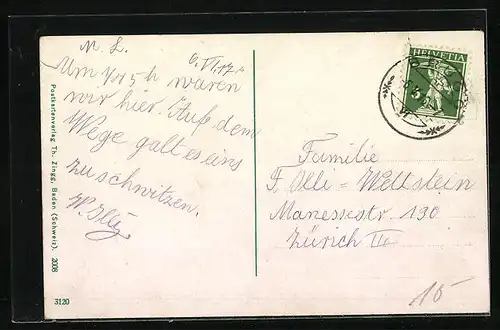 M. L. 6. VI. 17.
Um ½5 h waren
wir hier. Auf dem
Wege galt es eins
zu schwitzen.
W. Illi
HELVETIA
5
Familie
F. Illi = Wettstein
Manessestr. 130
Zürich III
15-
Postkartenverlag Th. Zingg, Baden (Schweiz). 2008
3120